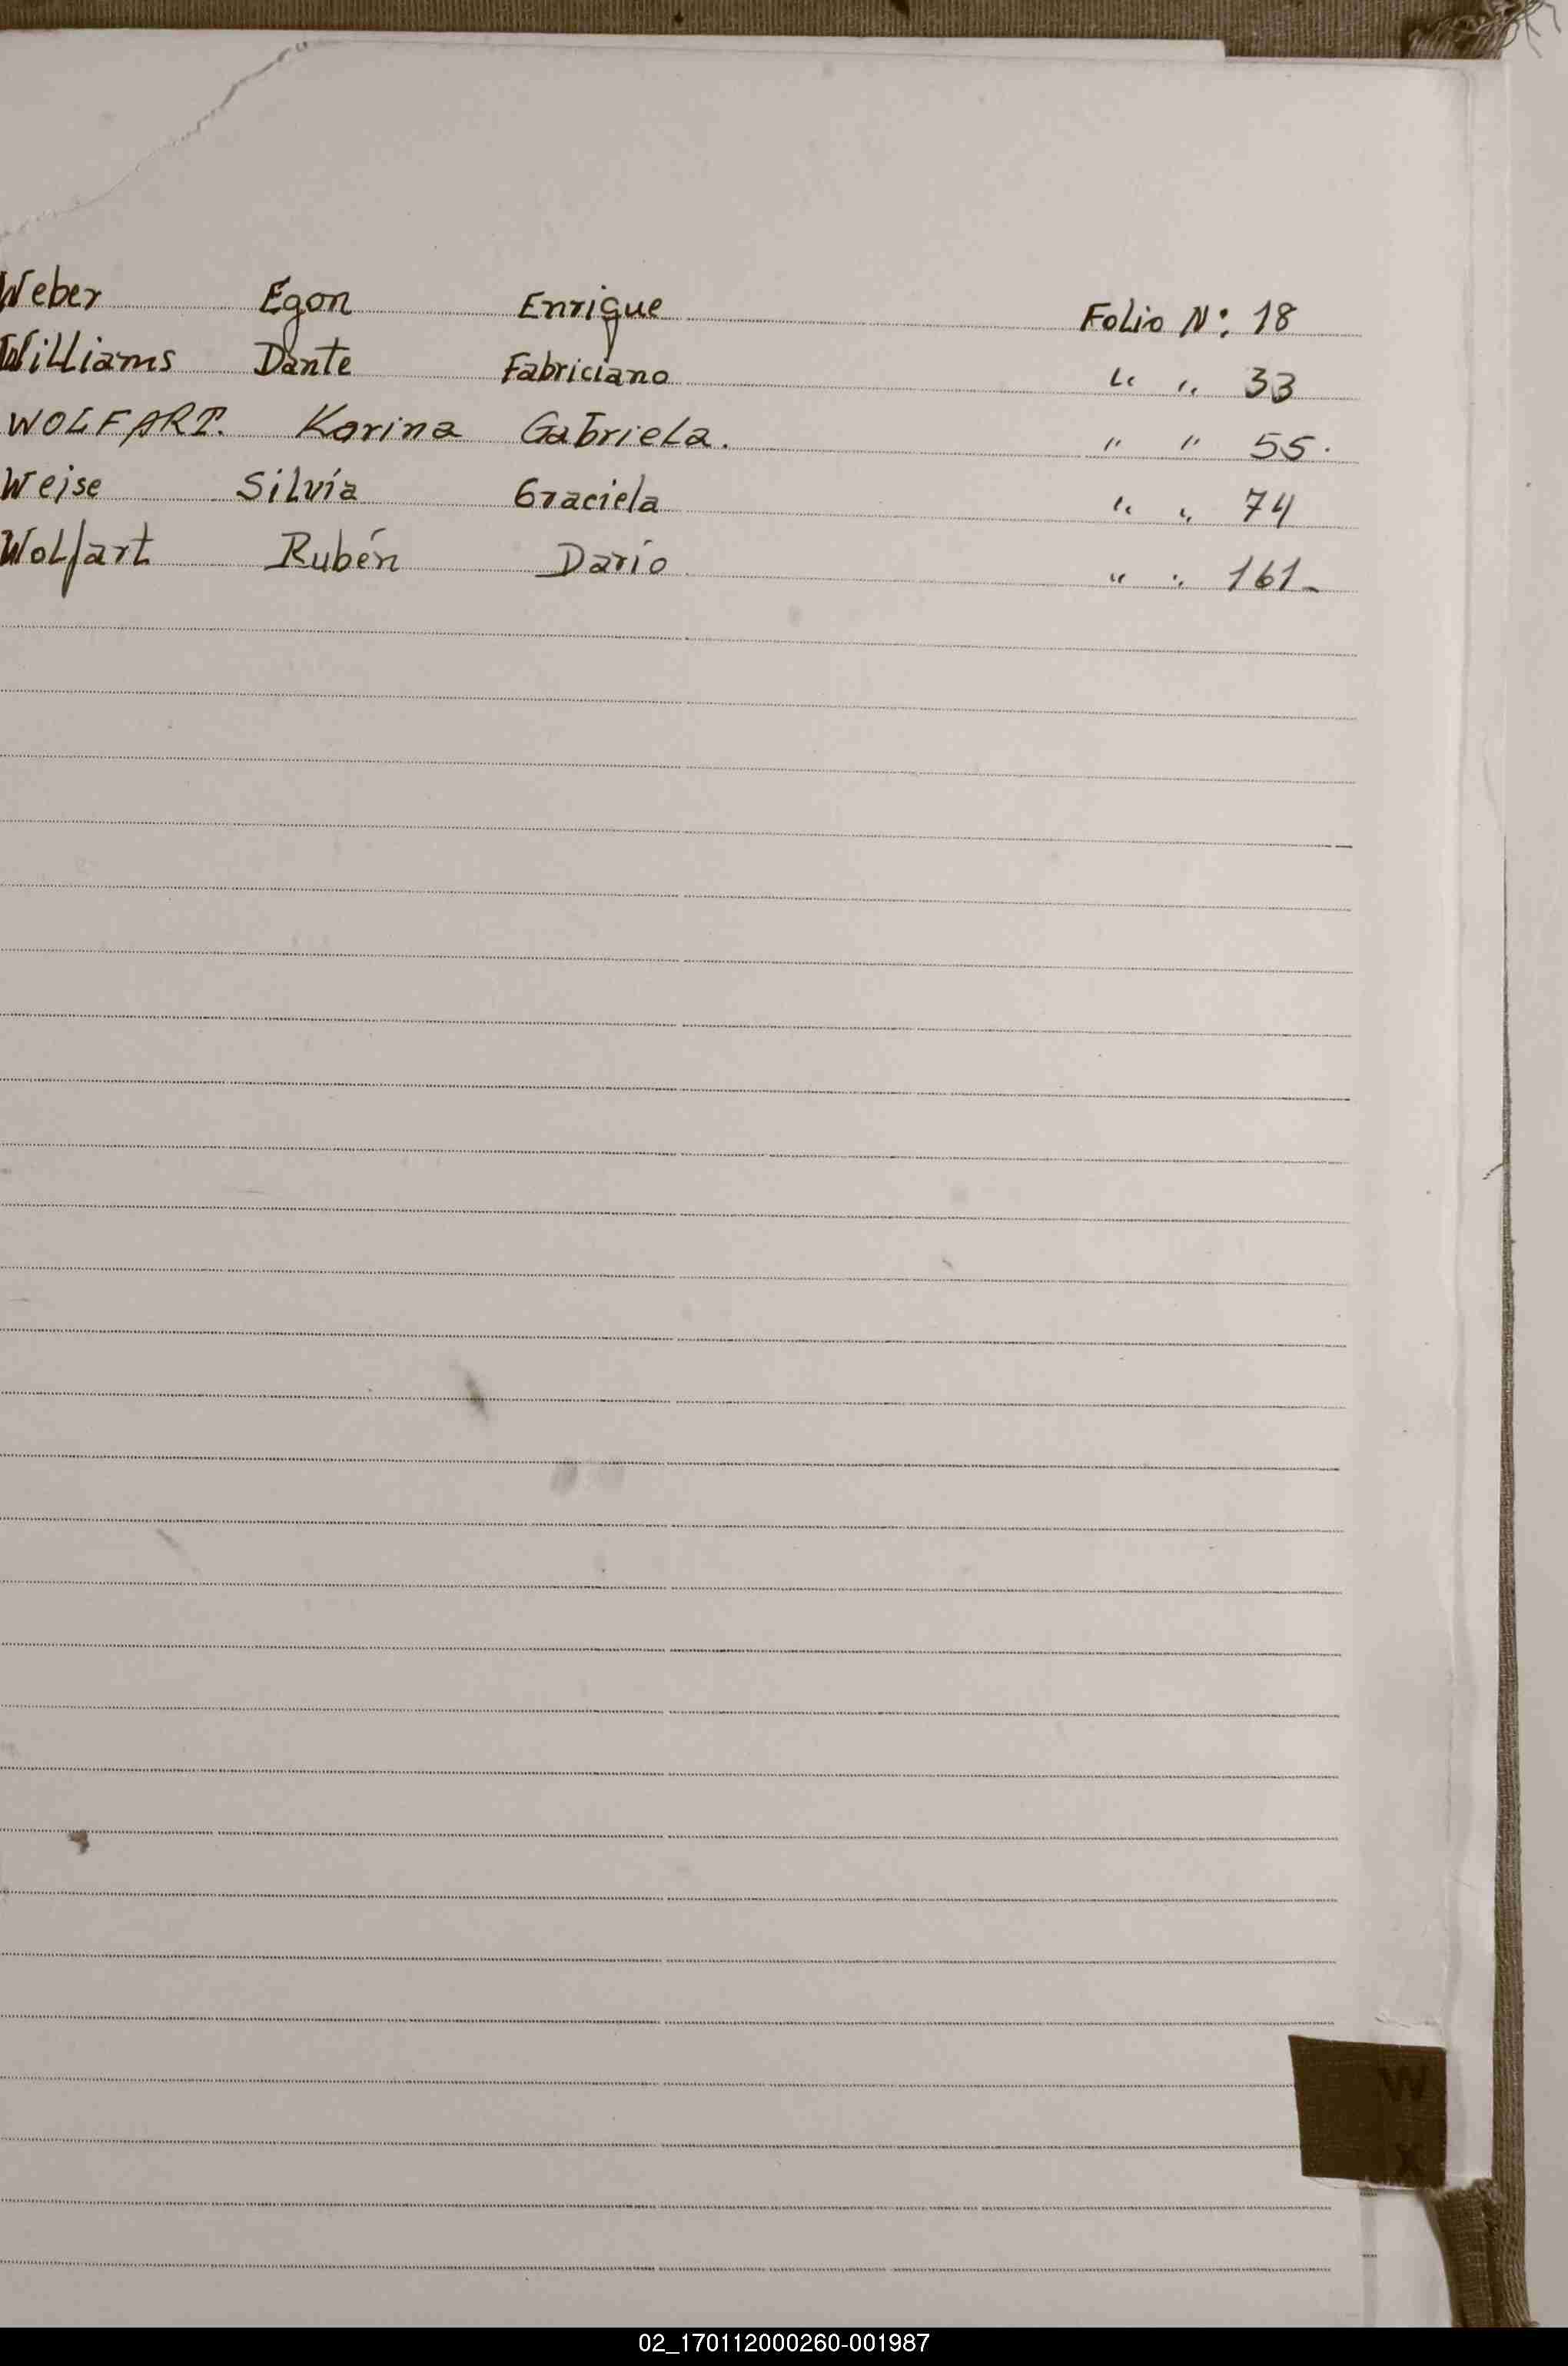 Weber Egon Enrique Folio N: 18
Williams Dante Fabriciano " " 33
WOLFART. Karina Gabriela. " " 55.
Weise Silvia Graciela " " 74
Wolfart Rubén Darío " " 161_
W
X
02_170112000260-001987